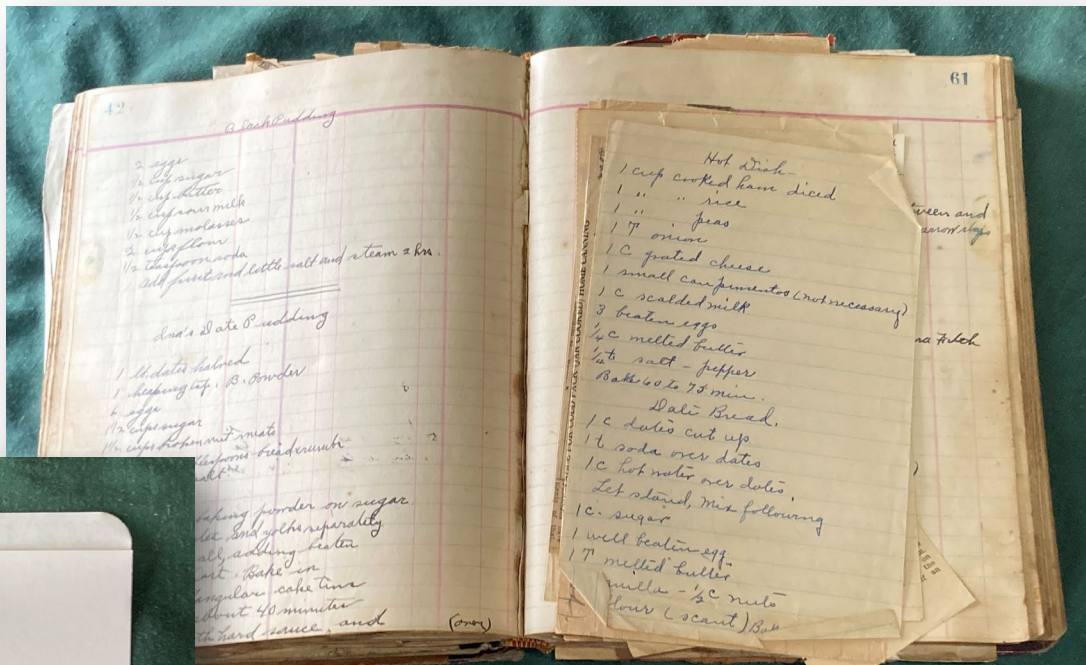 42
Pudding
2 eggs
1/2 cup sugar
1/2 cup butter
1/2 cup sour milk
1/2 cup molasses
2 cups flour
1/2 teaspoon soda
add fruit and little salt and steam 2 hrs.
Date Pudding
1 lb. dates halved
1 heaping tsp. B. Powder
4 eggs
1 1/2 cups sugar
1 1/2 cups broken nut meats
breadcrumbs
salt
baking powder on sugar
and yolks separately
all, adding beaten
Bake in
cake tins
about 40 minutes
hard sauce, and
(over)
61
Hot Dish -
1 cup cooked ham diced
1 " " rice
1 " peas
1 T onion
1 C grated cheese
1 small can pimentos (not necessary)
1 C scalded milk
3 beaten eggs
1/4 C melted butter
salt - pepper
Bake 60 to 75 min.
Date Bread.
1 C dates cut up
1 t soda over dates
1 C hot water over dates.
Let stand, Mix following
1 C. sugar
1 well beaten egg
1 T melted butter
- 1/2 C nuts
flour (scant) Bake
and
HOME CANNING